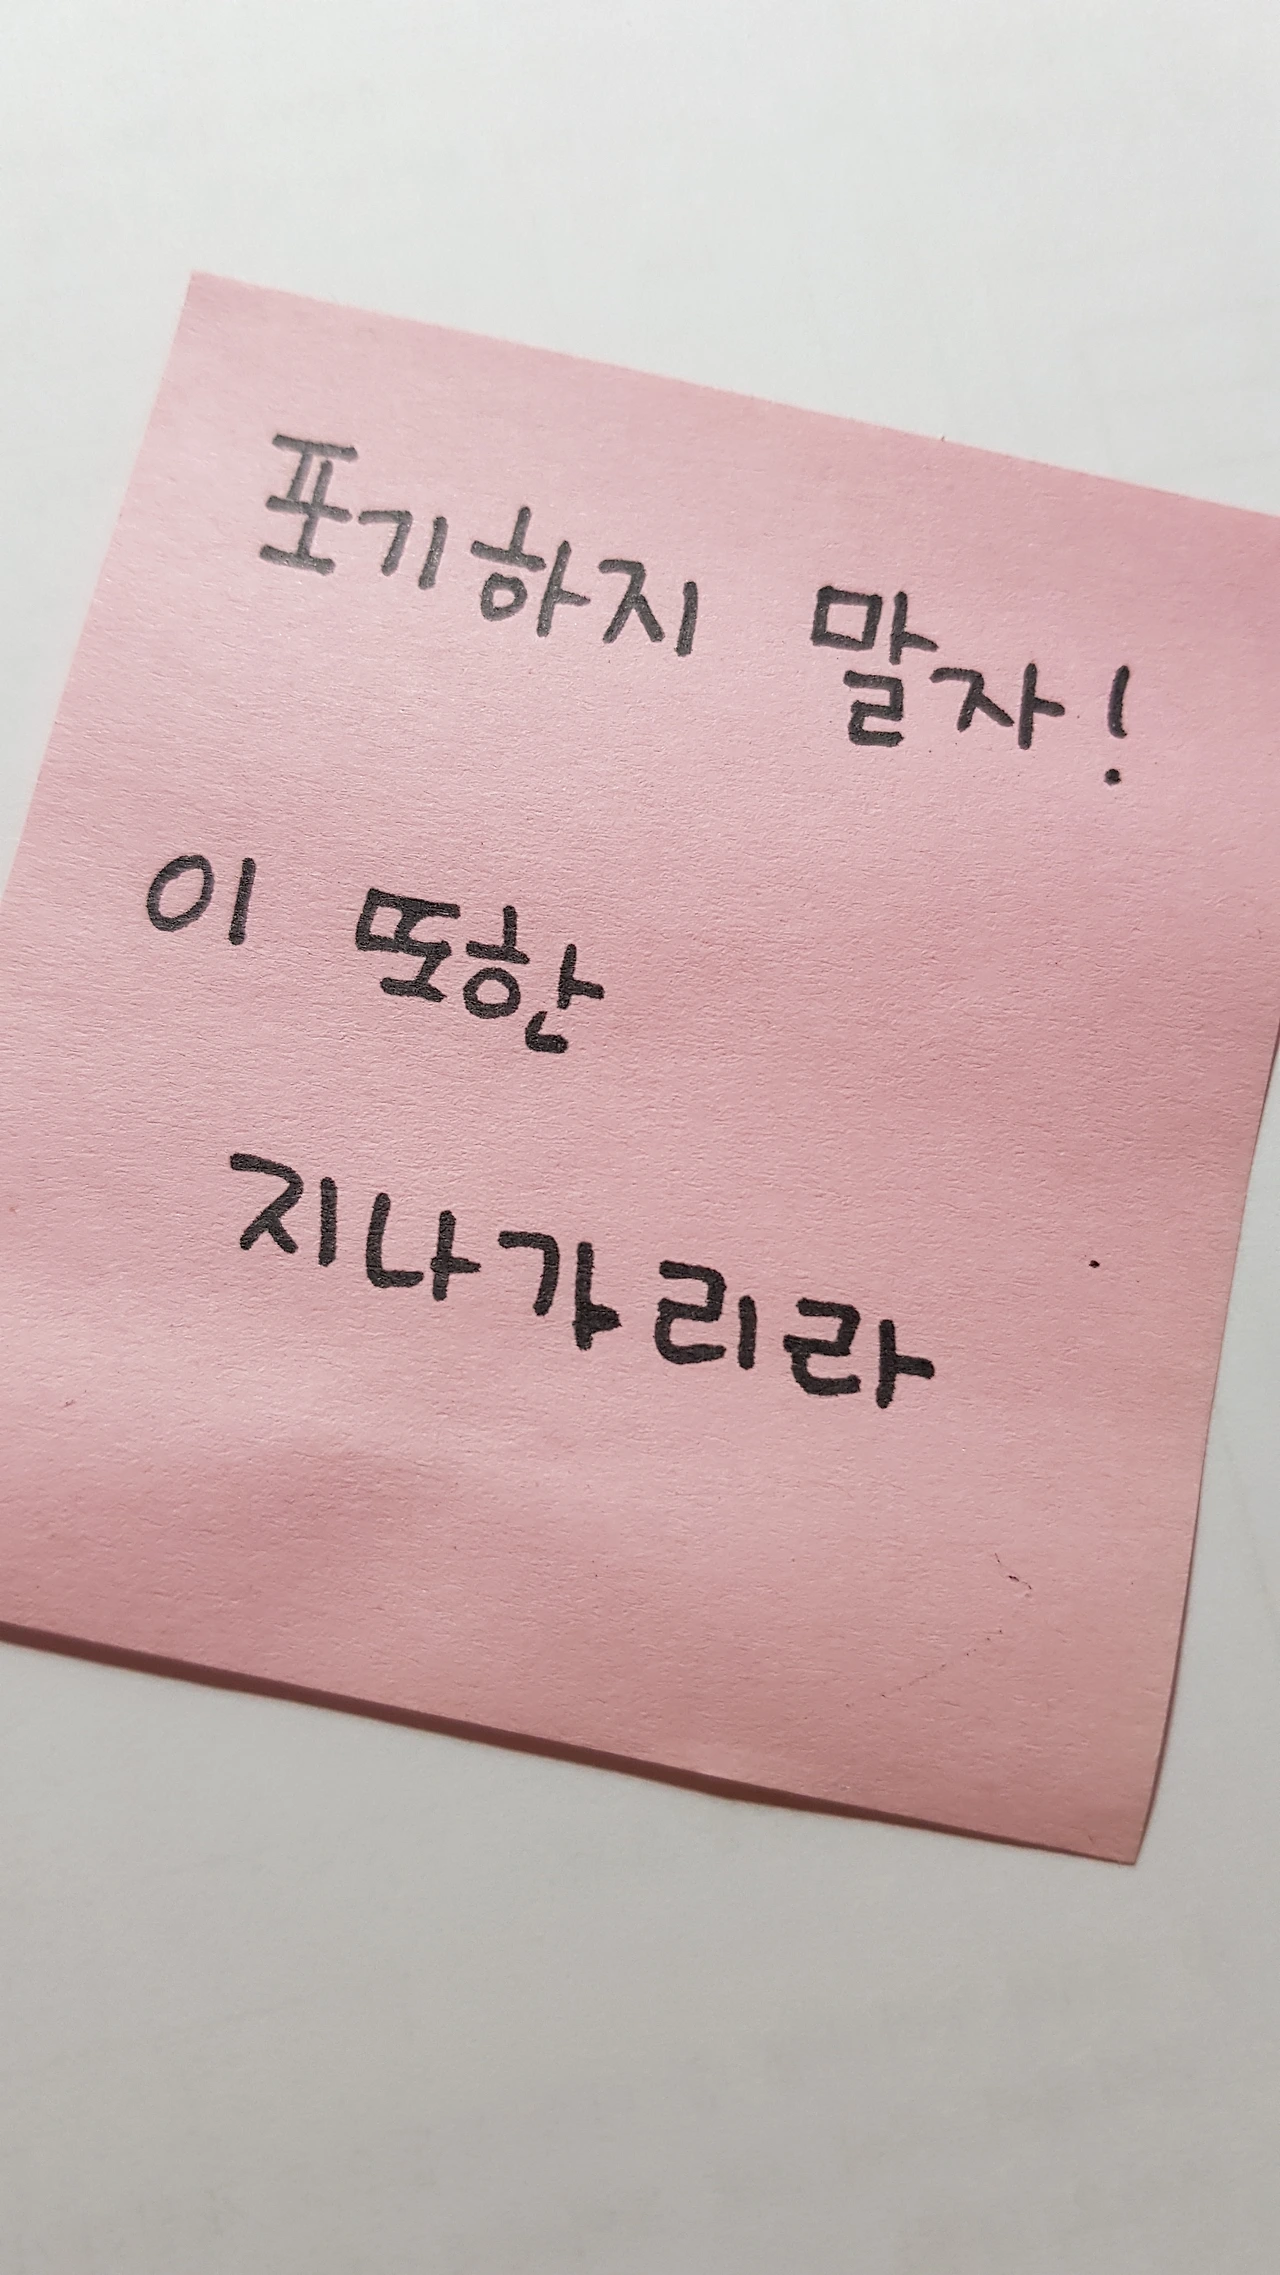 포기하지 말자!
이 또한
지나가리라